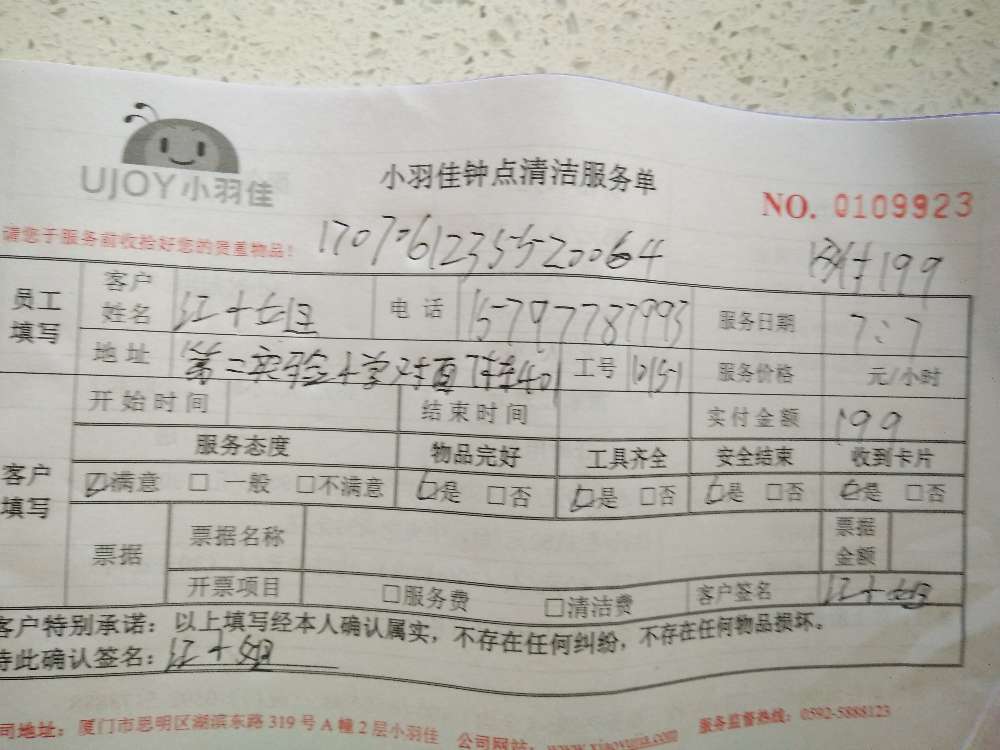 UJOY小羽佳
小羽佳钟点清洁服务单
NO. 0109923
请您于服务前收拾好您的贵重物品!
199
员工填写
客户姓名 江小姐 电话 15797787993 服务日期 7:7
地址 第二实验小学对面 工号 服务价格 元/小时
开始时间 结束时间 实付金额 199
客户填写
服务态度 物品完好 工具齐全 安全结束 收到卡片
☑满意 □ 一般 □不满意 □是 □否 □是 □否 □是 □否 □是 □否
票据 票据名称 票据金额
开票项目 □服务费 □清洁费 客户签名 江小姐
客户特别承诺:以上填写经本人确认属实,不存在任何纠纷,不存在任何物品损坏。
特此确认签名:江小姐
司地址:厦门市思明区湖滨东路319号A幢2层小羽佳 公司网站:www.xiaoyujia.com 服务监督热线:0592-5888123